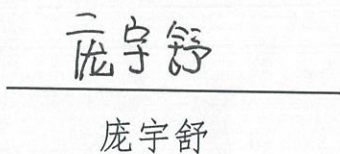 庞宇舒
庞宇舒